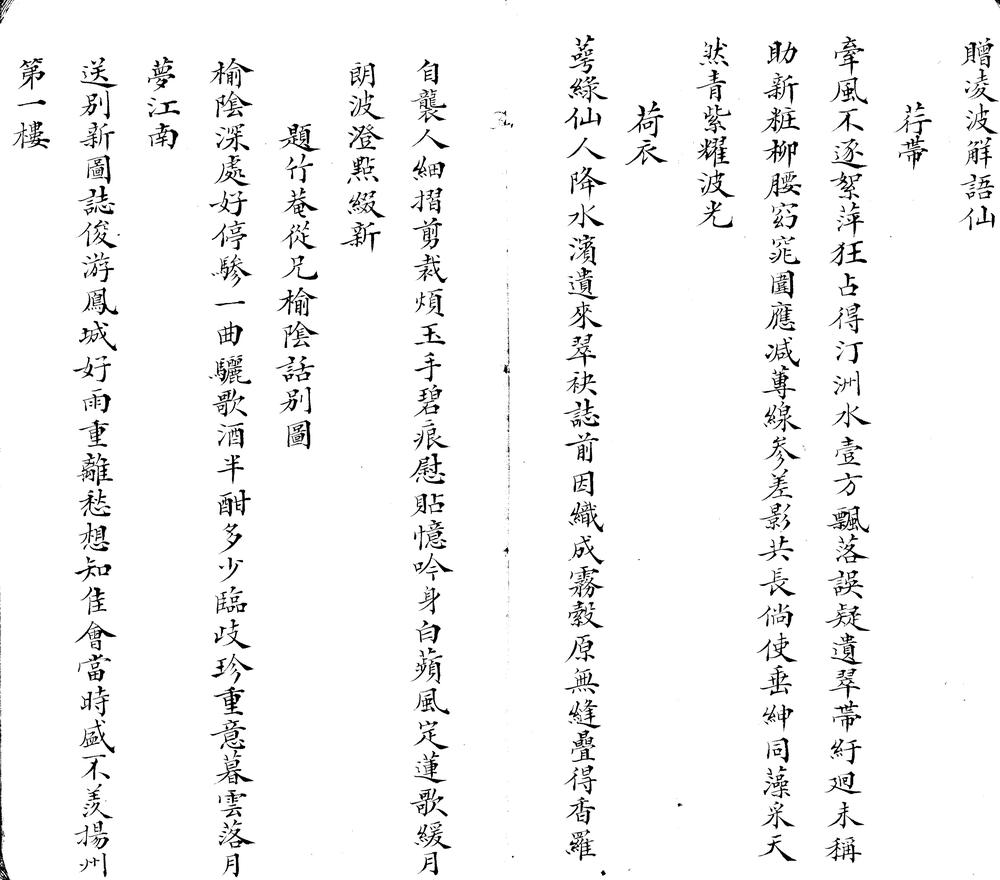 贈凌波解語仙
荇帶
牽風不逐絮萍狂占得汀洲水壹方飄落誤疑遺翠帶紆迴未稱
助新粧柳腰窈窕圍應減蓴線參差影共長倘使垂紳同藻采天
然青紫耀波光
荷衣
萼綠仙人降水濱遺來翠袂誌前因織成霧縠原無縫疊得香羅
自襲人細摺剪裁煩玉手碧痕慰貼憶吟身白蘋風定蓮歌緩月
朗波澄點綴新
題竹菴從兄榆陰話别圖
榆陰深處好停驂一曲驪歌酒半酣多少臨歧珍重意暮雲落月
夢江南
送别新圖誌俊游鳳城好雨重離愁想知佳會當時盛不羨揚州
第一樓